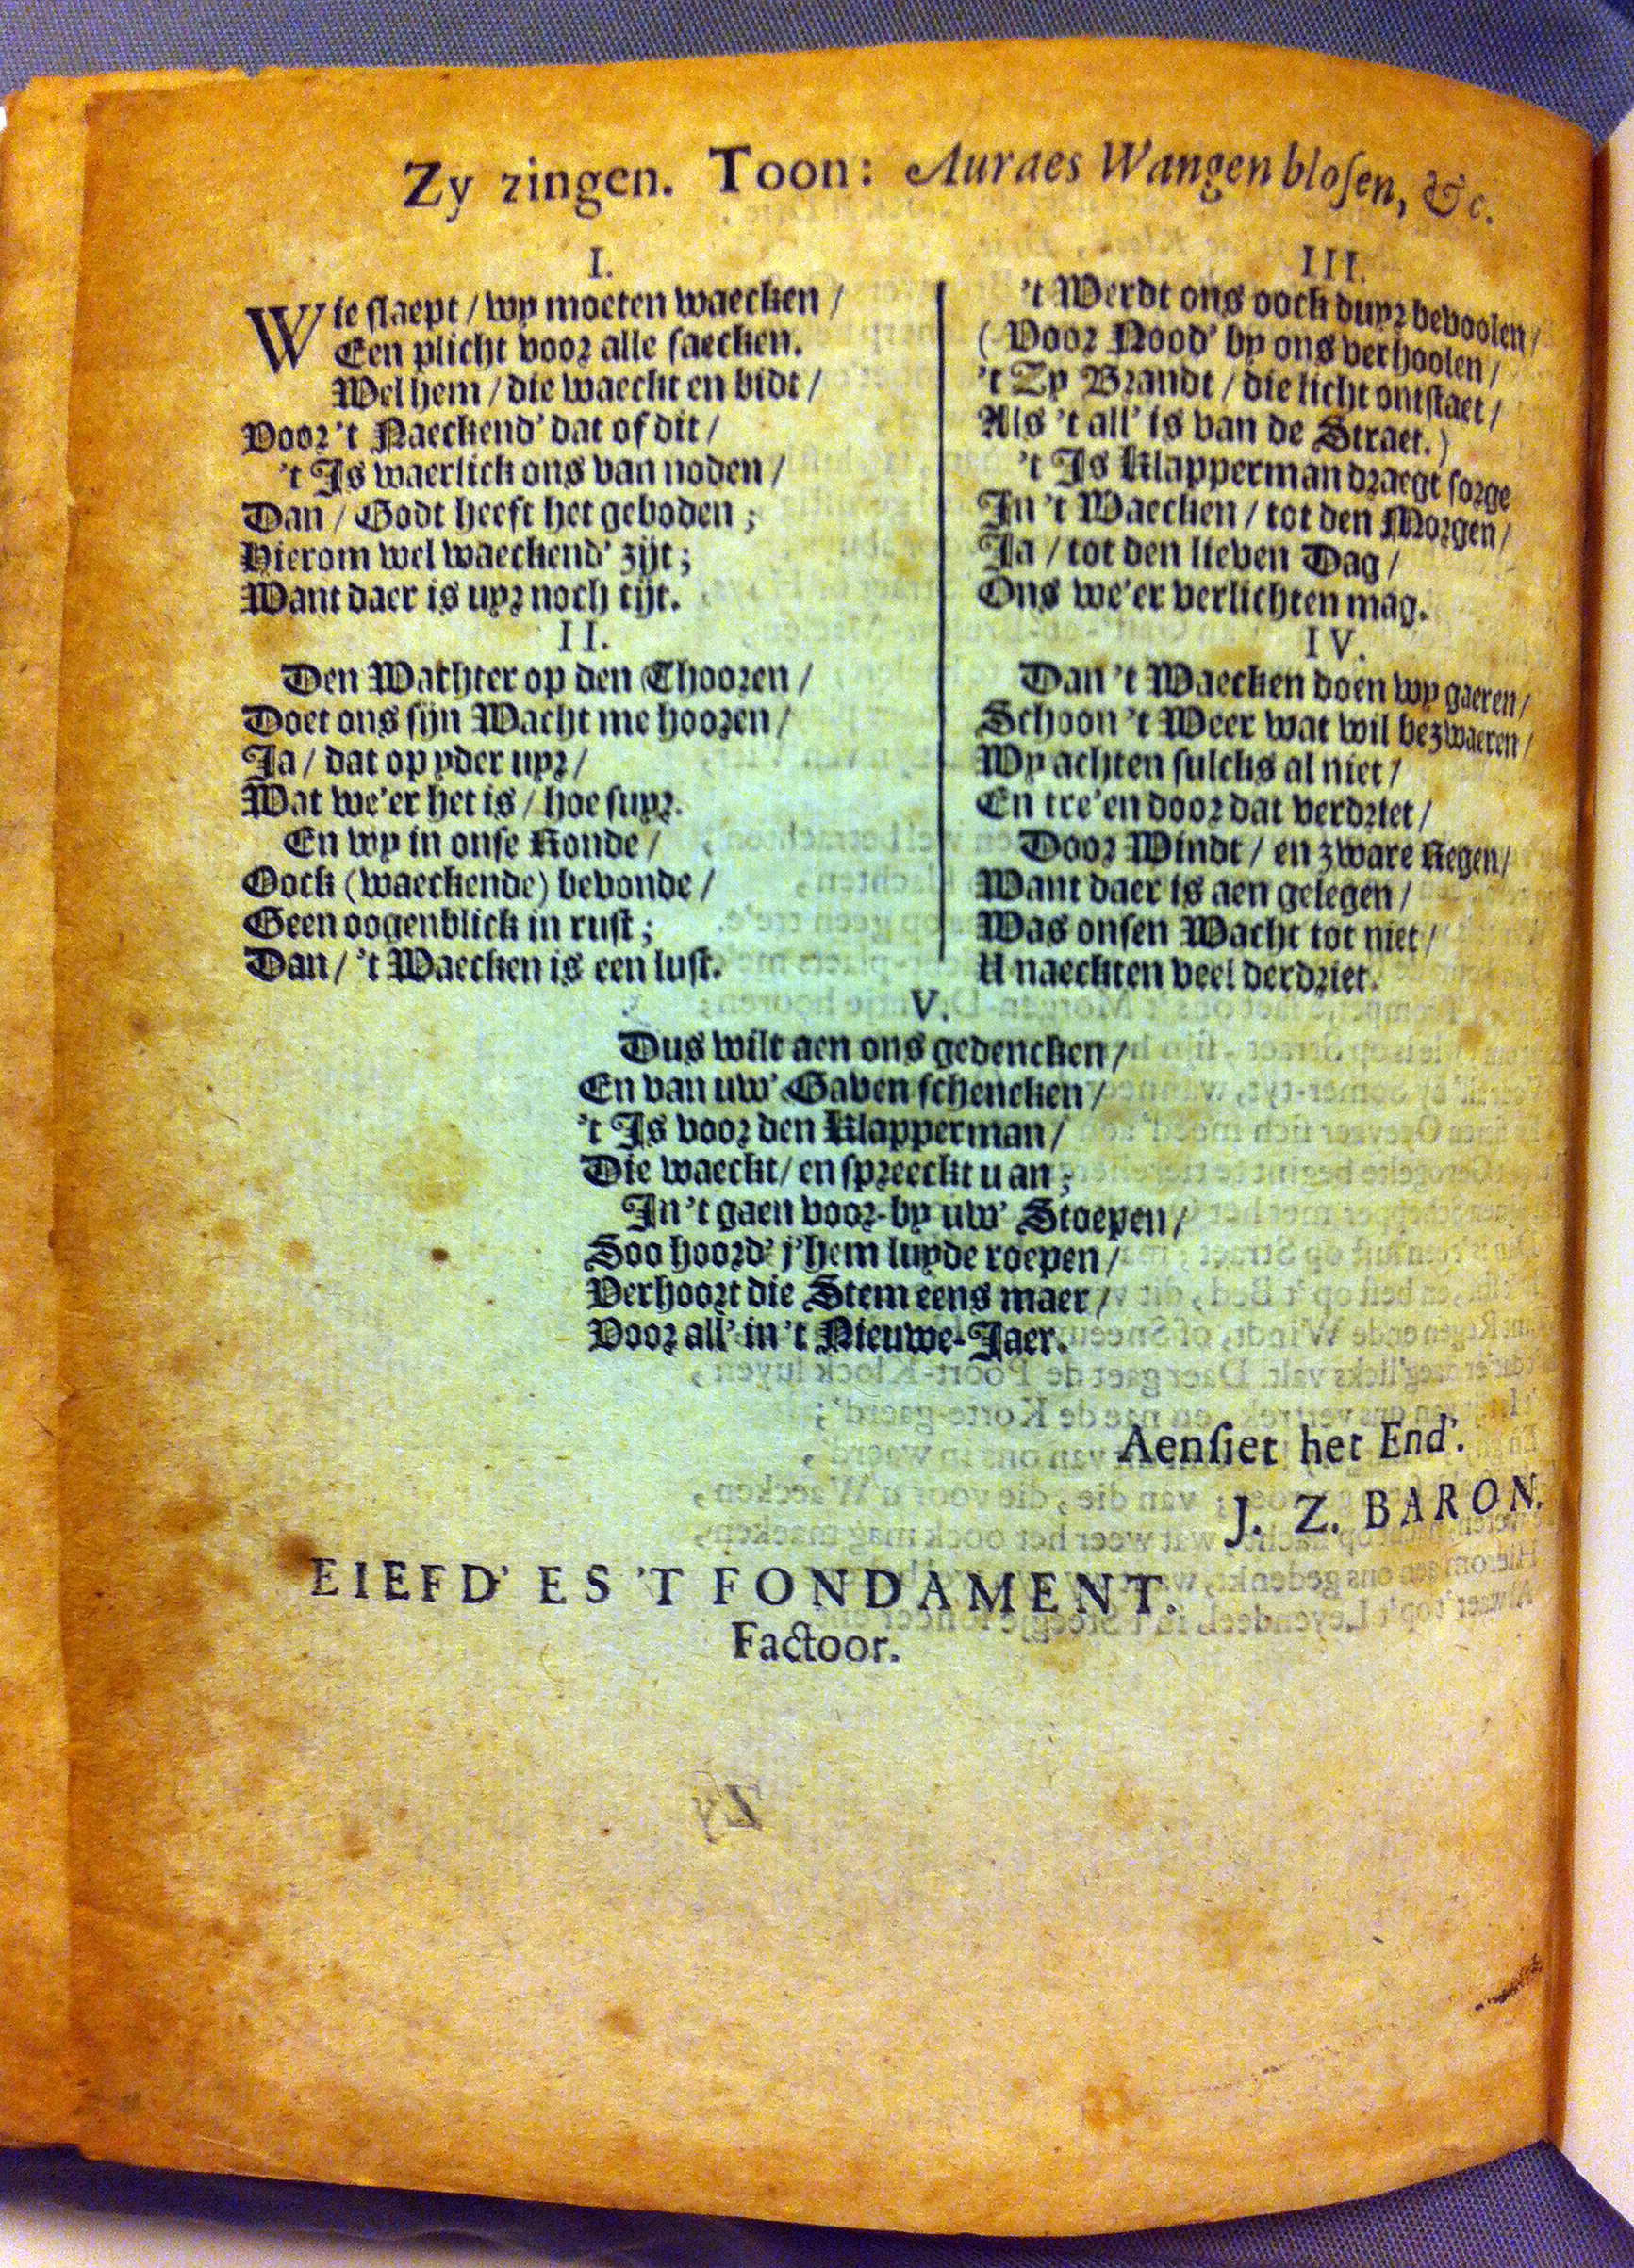 Zy zingen. Toon: Auraes Wangen blosen, &c.
I.
Wie slaept / wy moeten waecken /
Een plicht voor alle saecken.
Wel hem / die waeckt en bidt /
Voor 't Naeckend' dat of dit /
't Is waerlick ons van noden /
Dan / Godt heeft het geboden ;
Hierom wel waeckend' zijt ;
Want daer is uyr noch tijt.
II.
Den Wachter op den Thooren /
Doet ons sijn Wacht me hooren /
Ja / dat op yder uyr /
Wat we'er het is / hoe suyr.
En wy in onse Ronde /
Oock (waeckende) bevonde /
Geen oogenblick in rust ;
Dan / 't Waecken is een lust.
III.
't Werdt ons oock duyr bevoolen /
( Voor Nood' by ons verhoolen /
't Zy Brandt / die licht ontstaet /
Als 't all' is van de Straet. )
't Is Klapperman draegt sorge
In 't Waecken / tot den Morgen /
Ja / tot den lieven Dag /
Ons we'er verlichten mag.
IV.
Dan 't Waecken doen wy gaeren /
Schoon 't Weer wat wil bezwaeren /
Wy achten sulcks al niet /
En tre'en door dat verdriet /
Door Windt / en zware Regen /
Want daer is aen gelegen /
Was onsen Wacht tot niet /
U naeckten veel derdriet.
V.
Dus wilt aen ons gedencken /
En van uw' Gaven schencken /
't Is voor den Klapperman /
Die waeckt / en spreeckt u an ;
In 't gaen voor-by uw' Stoepen /
Soo hoord' j'hem luyde roepen /
Verhoort die Stem eens maer /
Voor all' in 't Nieuwe-Jaer.
Aensiet het End'.
J. Z. BARON.
EIEFD' ES 'T FONDAMENT.
Factoor.